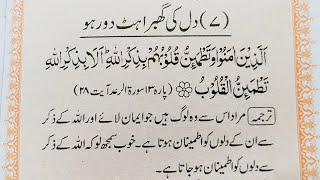 (۷) دل کی گھبراہٹ دور ہو
اَلَّذِیْنَ اٰمَنُوْا وَتَطْمَئِنُّ قُلُوْبُهُمْ بِذِکْرِ اللّٰهِ ؕ اَلَا بِذِکْرِ اللّٰهِ
تَطْمَئِنُّ الْقُلُوْبُ (پارہ ۱۳ سورۃ الرعد آیت ۲۸)
ترجمہ مراد اس سے وہ لوگ ہیں جو ایمان لائے اور اللہ کے ذکر
سے ان کے دلوں کو اطمینان ہوتا ہے۔ خوب سمجھ لو کہ اللہ کے ذکر
سے دلوں کو اطمینان ہو جاتا ہے۔